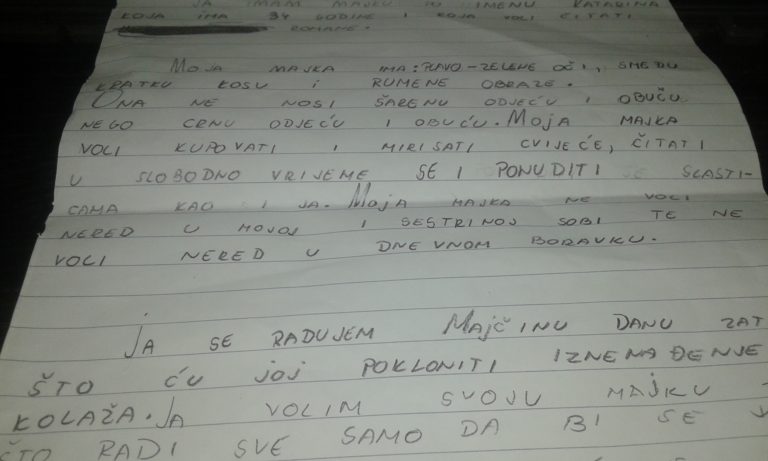 JA IMAM MAJKU PO IMENU KATARINA
KOJA IMA 34 GODINE I KOJA VOLI ČITATI
ROMANE.
MOJA MAJKA IMA: PLAVO-ZELENE OČI, SMEĐU
KRATKU KOSU I RUMENE OBRAZE.
ONA NE NOSI ŠARENU ODJEĆU I OBUĆU
NEGO CRNU ODJEĆU I OBUĆU. MOJA MAJKA
VOLI KUPOVATI I MIRISATI CVIJEĆE, ČITATI
U SLOBODNO VRIJEME SE I PONUDITI SE SLASTI-
CAMA KAO I JA. MOJA MAJKA NE VOLI
NERED U MOJOJ I SESTRINOJ SOBI TE NE
VOLI NERED U DNEVNOM BORAVKU.
JA SE RADUJEM MAJČINU DANU ZAT
ŠTO ĆU JOJ POKLONITI IZNENAĐENJE
KOLAŽA. JA VOLIM SVOJU MAJKU
ŠTO RADI SVE SAMO DA BI SE